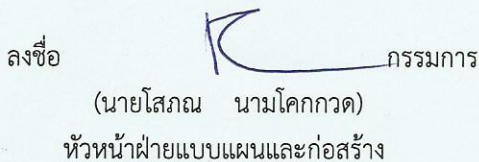 ลงชื่อ กรรมการ
(นายโสภณ นามโคกกวด)
หัวหน้าฝ่ายแบบแผนและก่อสร้าง